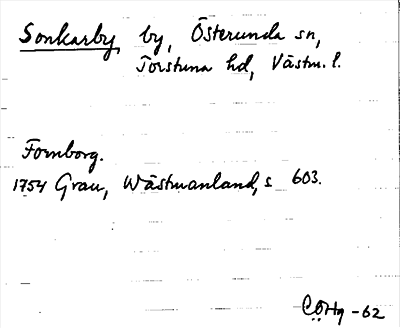 Sonkarby, by, Österunda sn,
Torstuna hd, Västm. l.
Fornborg.
1754 Grau, Wästmanland, s 603.
CÖHg -62